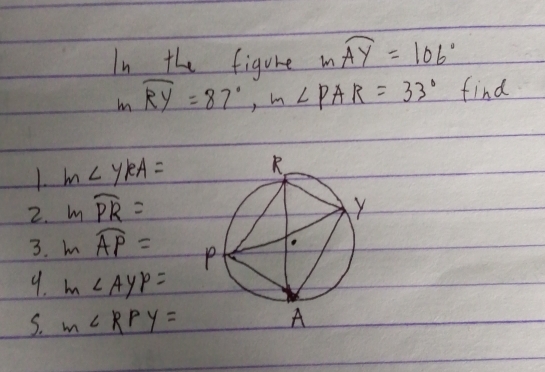 In the figure m A͡Y = 106°
m R͡Y = 87°, m ∠PAR = 33° find
1. m∠YRA =
2. m P͡R =
3. m A͡P =
4. m ∠AYP =
5. m ∠RPY =
R
Y
P
A